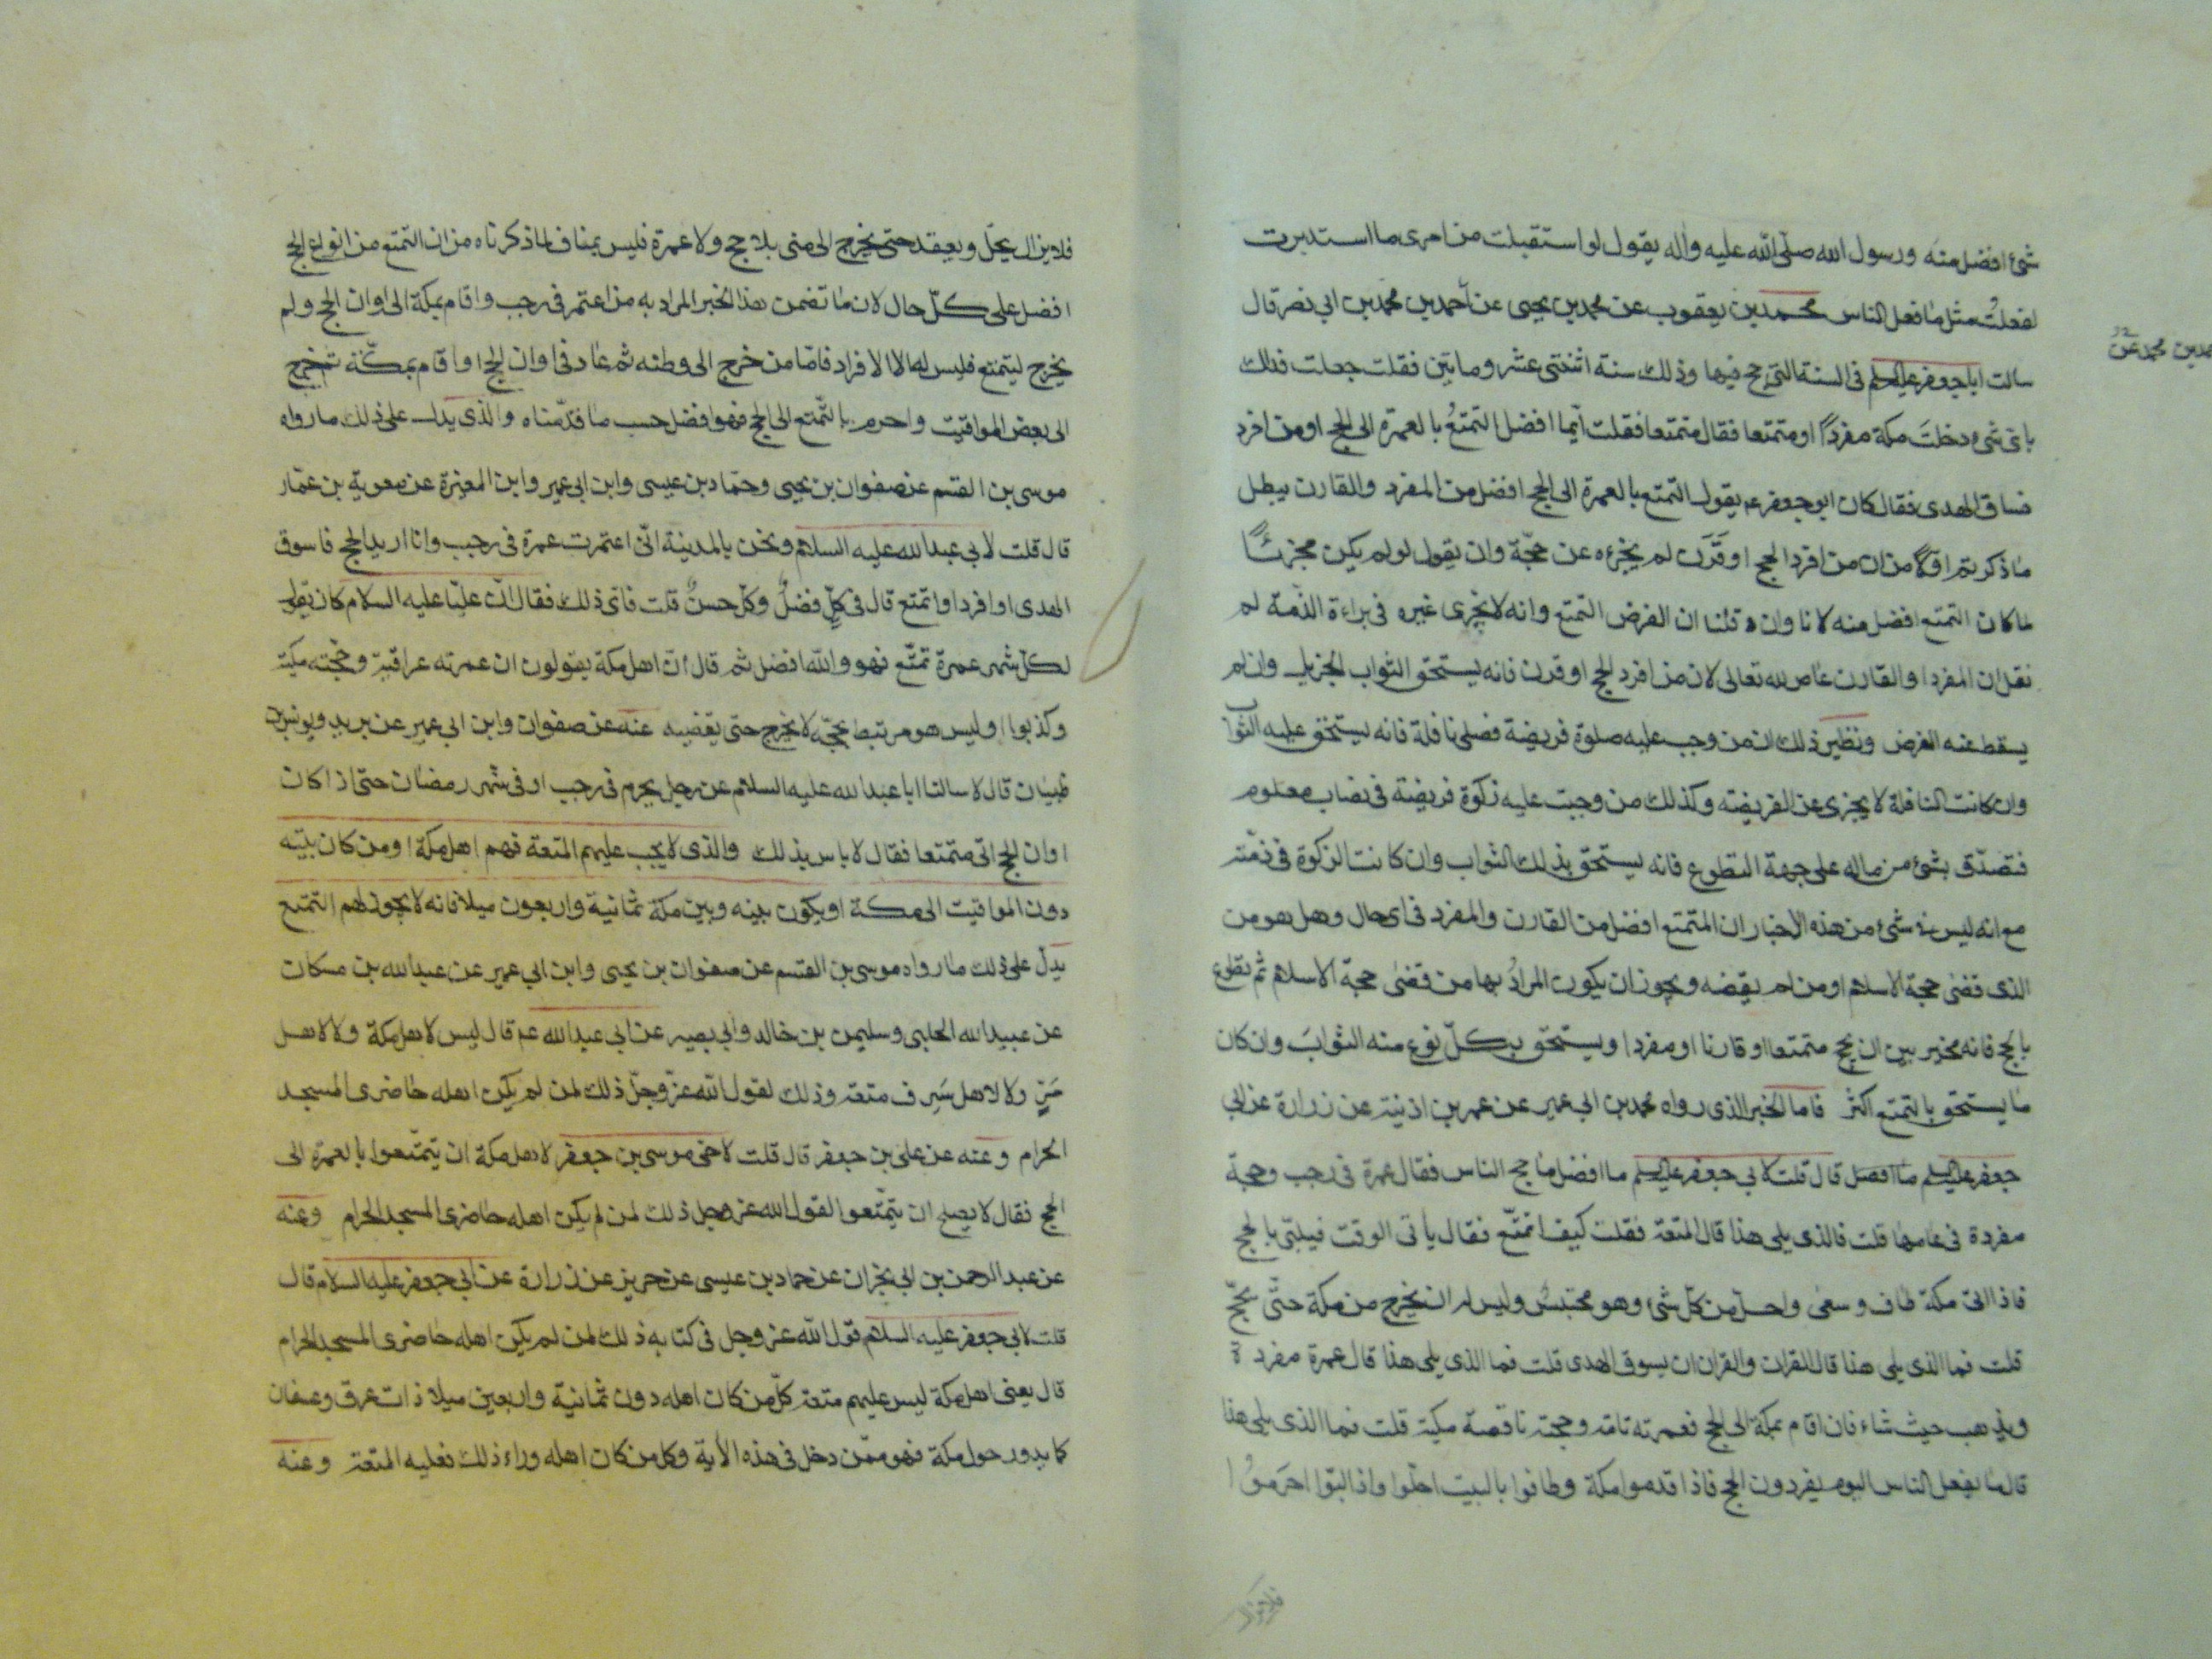 شئ افضل منه ورسول الله صلى الله عليه واله يقول لو استقبلت من امرى ما استدبرت
لفعلت مثل ما فعل الناس محمد بن يعقوب عن محمد بن يحيى عن احمد بن محمد بن ابي نصر قال
سالت ابا جعفر عليه السلم فى السنة التى حج فيها وذلك سنة اثنتى عشر وماتين فقلت جعلت فداك
باى شىء دخلت مكة مفردًا او متمتعا فقال متمتعا فقلت ايما افضل التمتعُ بالعمرة الى الحج او من افرد
فساق الهدى فقال كان ابو جعفر عم يقول التمتع بالعمرة الى الحج افضل من المفرد والقارن يبطل
ما ذكرتم اولًا من ان من افرد الحج او قَرَن لم يجزءه عن حجّة وان يقول لو لم يكن مجزئًا
لما كان التمتع افضل منه لانا وان قلنا ان الفرض التمتع وانه لا يجزى غيره فى براءة الذمة لم
نقل ان المفرد او القارن عاص لله تعالى لان من افرد الحج او قرن فانه يستحق الثواب الجزيل وان لم
يسقط عنه الفرض ونظير ذلك ان من وجب عليه صلوة فريضة فصلى نافلة فانه يستحق عليه الثواب
وان كانت النافلة لا يجزى عن الفريضة وكذلك من وجبت عليه زكوة فريضة فى نصاب معلوم
فتصدّق بشئ من ماله على جهة التطوع فانه يستحق بذلك الثواب وان كانت الزكوة فى ذمته
مع انه ليس فى شئ من هذه الاخبار ان المتمتع افضل من القارن والمفرد فى اى حال وهل هو من
الذى قضى حجة الاسلام او من لم يقضه ويجوز ان يكون المرادُ بها من قضى حجة الاسلام ثم تطوع
بالحج فانه مخير بين ان يحج متمتعا او قارنا او مفردا ويستحق بكلّ نوع منه الثوابَ وان كان
ما يستحق بالتمتع اكثر فاما الخبر الذى رواه محمد بن ابي عمير عن عمر بن اذينة عن زرارة عن ابي
جعفر عليه السلم ما افضل قال قلت لابي جعفر عليه السلم ما افضل ما حج الناس فقال عمرة فى رجب وحجة
مفردة فى عامها قلت فالذى يلى هذا قال المتعة فقلت كيف اتمتّع فقال ياتى الوقت فيلبّى بالحج
فاذا اتى مكة طاف وسعى واحلّ من كلّ شئ وهو محتبسٌ وليس له ان يخرج من مكة حتّى يحجّ
قلت فما الذى يلى هذا قال القران والقران ان يسوق الهدى قلت فما الذى يلى هذا قال عمرة مفردة
ويذهب حيث شاء فان اقام بمكة الى الحج فعمرته تامة وحجته ناقصة مكية قلت فما الذى يلى هذا
قال ما يفعل الناس اليوم يفردون الحج فاذا قدموا مكة وطافوا بالبيت احلّوا واذا لبّوا احرموُا
فلا يزال يحلّ ويعقد حتى يخرج الى منى بلا حج ولا عمرة فليس بمناف لما ذكرناه من ان التمتع من انواع الحج
افضل على كلّ حال لان ما تضمن هذا الخبر المراد به من اعتمر فى رجب واقام بمكة الى اوان الحج ولم
يخرج ليتمتع فليس له الا الافراد فامّا من خرج الى وطنه ثم عاد فى اوان الحج او اقام بمكّة ثم خرج
الى بعض المواقيت واحرم بالتّمتع الى الحج فهو افضل حسب ما قدّمناه والذى يدل على ذلك ما رواه
موسى بن القسم عن صفوان بن يحيى وحمّاد بن عيسى وابن ابى عمير وابن المغيرة عن معوية بن عمّار
قال قلت لابى عبد الله عليه السلام ونحن بالمدينة انّى اعتمرت عمرة فى رجب وانا اريد الحج فاسوق
الهدى او افرد او اتمتع قال فى كلّ فضلٌ وكلّ حسنٌ قلت فاى ذلك فقال انّ عليّا عليه السلام كان يقول
لكلّ شهر عمرة تمتّع فهو والله افضل ثم قال انّ اهل مكة يقولون ان عمرته عراقية وحجته مكية
وكذبوا اوليس هو مرتبط بحجّه لا يخرج حتى يقضيه عنه عن صفوان وابن ابي عمير عن بريد ويونس بن
ظبيان قالا سالنا ابا عبد الله عليه السلام عن رجل يحرم فى رجب او فى شهر رمضان حتى اذا كان
اوان الحج اتى متمتعا فقال لا باس بذلك والذى لا يجب عليهم المتعة فهم اهل مكة او من كان بيته
دون المواقيت الى مكة او يكون بينه وبين مكة ثمانية واربعون ميلا فانه لا يجوز لهم التمتع
يدلّ على ذلك ما رواه موسى بن القسم عن صفوان بن يحيى وابن ابي عمير عن عبد الله بن مسكان
عن عبيد الله الحلبى وسليمن بن خالد وابي بصير عن ابي عبد الله عم قال ليس لاهل مكة ولا لاهل
مَرٍّ ولا لاهل سَرِف متعة وذلك لقول الله عزّ وجلّ ذلك لمن لم يكن اهله حاضرى المسجد
الحرام وعنه عن على بن جعفر قال قلت لاخى موسى بن جعفر لاهل مكة ان يتمتّعوا بالعمرة الى
الحج فقال لا يصلح ان يتمّتعوا لقول الله عز وجل ذلك لمن لم يكن اهله حاضرى المسجد الحرام وعنه
عن عبد الرحمن بن ابي نجران عن حماد بن عيسى عن حريز عن زرارة عن ابي جعفر عليه السلام قال
قلت لابي جعفر عليه السلام قول الله عز وجل فى كتابه ذلك لمن لم يكن اهله حاضرى المسجد الحرام
قال يعنى اهل مكة ليس عليهم متعة كلّ من كان اهله دون ثمانية واربعين ميلا ذات عرق وعسفان
كما يدور حول مكة فهو ممّن دخل فى هذه الاية وكل من كان اهله وراء ذلك فعليه المتعة وعنه